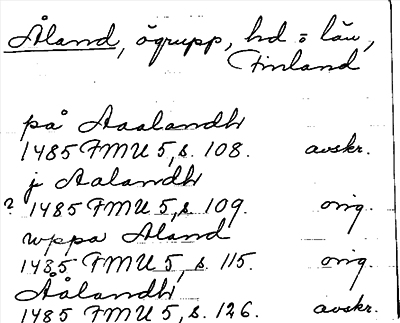 Åland, ögrupp, hd = län,
Finland
på Aaalandh
1485 FMU 5, s. 108. avskr.
j Aalandh
? 1485 FMU 5, s. 109. orig.
wppa Aland
1485 FMU 5, s. 115. orig.
Åålandh
1485 FMU 5, s. 126. avskr.